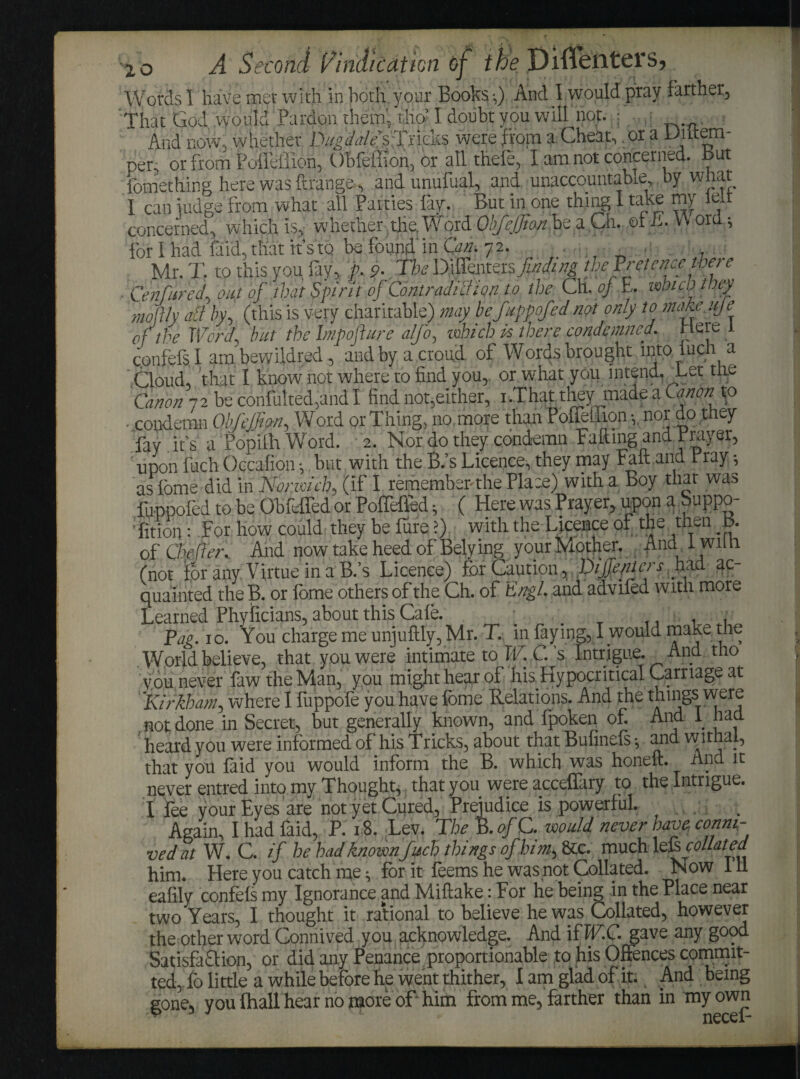 20 A Second Vindication of the Dissenters,
Words I have met with in both your Books;) And I would pray farther,
That God would Pardon them, tho' I doubt you will not.
And now, whether Dugdale's Tricks were from a Cheat, or a Distem-
per, or from Possession, Obsession, or all these, I am not concerned. But
something here was strange, and unusual, and unaccountable, by what
I can judge from what all Parties say. But in one thing I take my self
concerned, which is, whether the Word Obsession be a Ch. of E. Word;
for I had said, that it's to be found in Can. 72.
Mr. T. to this you say, p. 9. The Dissenters finding the Pretence there
Censured, out of that Spirit of Contradiction to the Ch. of E. which they
mostly act by, (this is very charitable) may be supposed not only to make use
of the Word, but the Imposture also, which is there condemned. Here I
confess I am bewildred, and by a croud of Words brought into such a
Cloud, that I know not where to find you, or what you intend. Let the
Canon 72 be consulted, and I find not, either, 1. That they made a Canon to
condemn Obsession, Word or Thing, no more than Possession; nor do they
say it's a Popish Word. 2. Nor do they condemn Fasting and Prayer,
upon such Occasion; but with the B.'s Licence, they may Fast and Pray;
as some did in Norwich, (if I remember the Place) with a Boy that was
supposed to be Obsessed or Possessed; ( Here was Prayer, upon a Suppo-
sition: For how could they be sure?) with the Licence of the then B.
of Chester. And now take heed of Belying your Mother. And I wish
(not for any Virtue in a B.'s Licence) for Caution, Dissenters had ac-
quainted the B. or some others of the Ch. of Engl. and advised with more
Learned Physicians, about this Case.
Pag. 10. You charge me unjustly, Mr. T. in saying, I would make the
World believe, that you were intimate to W. C.'s Intrigue. And tho'
you never saw the Man, you might hear of his Hypocritical Carriage at
Kirkham, where I suppose you have some Relations. And the things were
not done in Secret, but generally known, and spoken of. And I had
heard you were informed of his Tricks, about that Business; and withal,
that you said you would inform the B. which was honest. And it
never entred into my Thought, that you were accessary to the Intrigue.
I see your Eyes are not yet Cured, Prejudice is powerful.
Again, I had said, P. 18. Lev. The B. of C. would never have conni-
ved at W. C. if he had known such things of him, &c. much less collated
him. Here you catch me; for it seems he was not Collated. Now I'll
easily confess my Ignorance and Mistake: For he being in the Place near
two Years, I thought it rational to believe he was Collated, however
the other word Connived you acknowledge. And if W.C. gave any good
Satisfaction, or did any Penance proportionable to his Offences commit-
ted, so little a while before he went thither, I am glad of it. And being
gone, you shall hear no more of him from me, farther than in my own
neces-